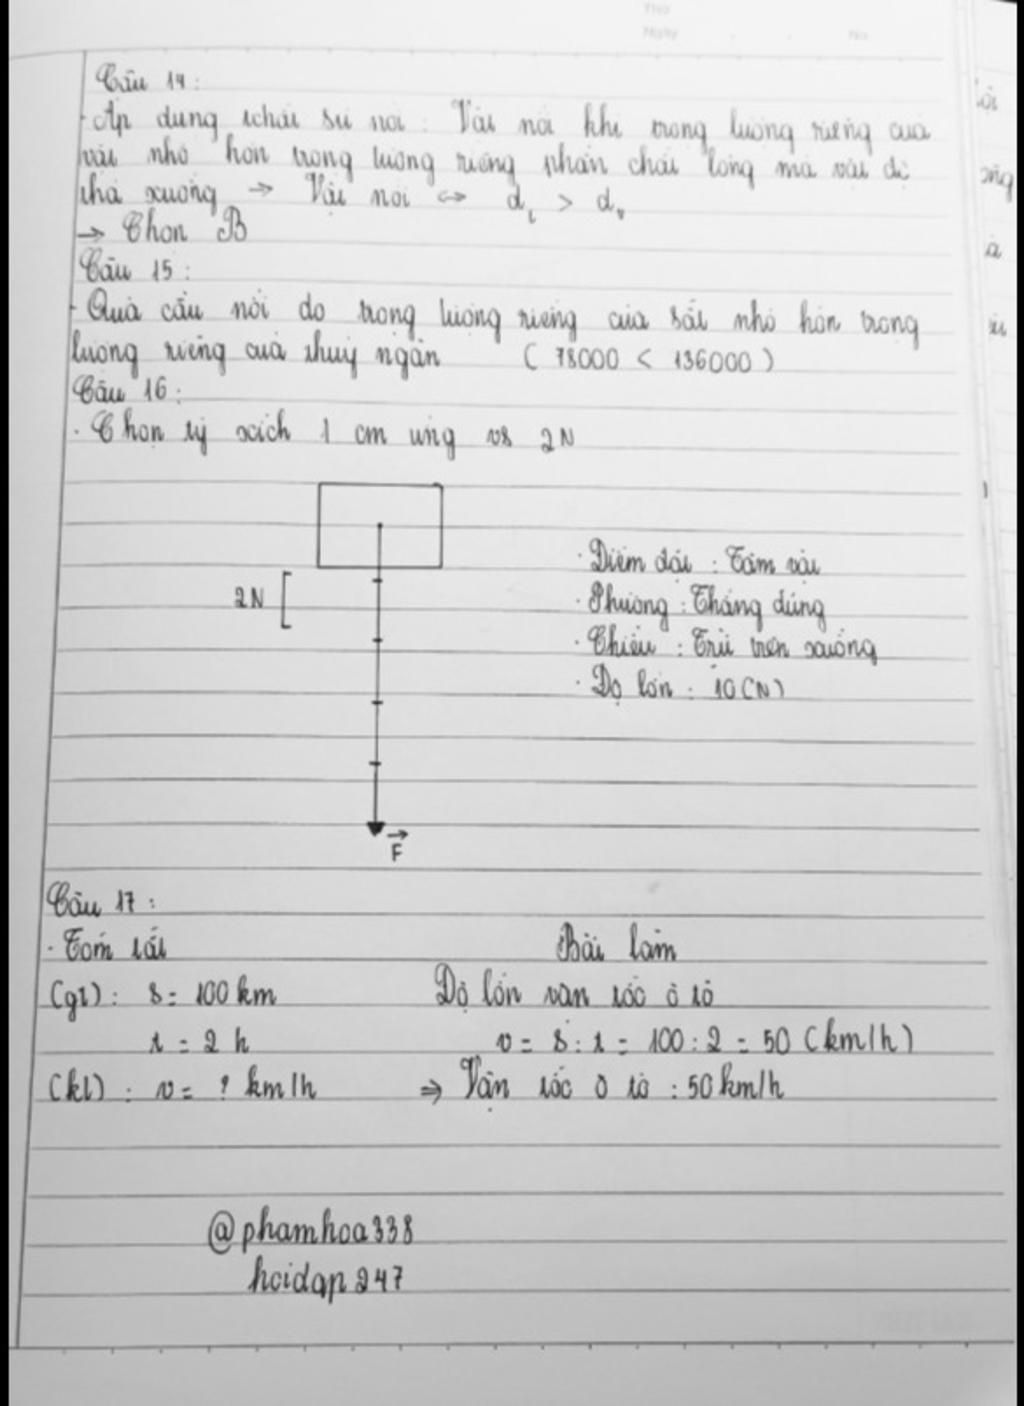 Thứ
Ngày . . No
Câu 14 :
- Áp dụng
sự nổi : Vật nổi khi trọng lượng riêng của
vật nhỏ hơn trọng lượng riêng phần chất lỏng mà vật đó
thả xuống → Vật nổi ⇔ d_l > d_v
→ Chọn B
Câu 15 :
- Quả cầu nổi do trọng lượng riêng của sắt nhỏ hơn trọng
lượng riêng của thuỷ ngân ( 78000 < 136000 )
Câu 16 :
. Chọn tỷ xích 1 cm ứng vs 2N
2N
. Điểm đặt : Tâm vật
. Phương : Thẳng đứng
. Chiều : Trừ trên xuống
. Độ lớn : 10(N)
F⃗
Câu 17 :
. Tóm tắt
Bài làm
(gt) : s = 100 km
Độ lớn vận tốc ô tô
t = 2 h
v = s : t = 100 : 2 = 50 (km/h)
(kl) : v = ? km/h
⇒ Vận tốc ô tô : 50 km/h
@phamhoa338
hoidap247